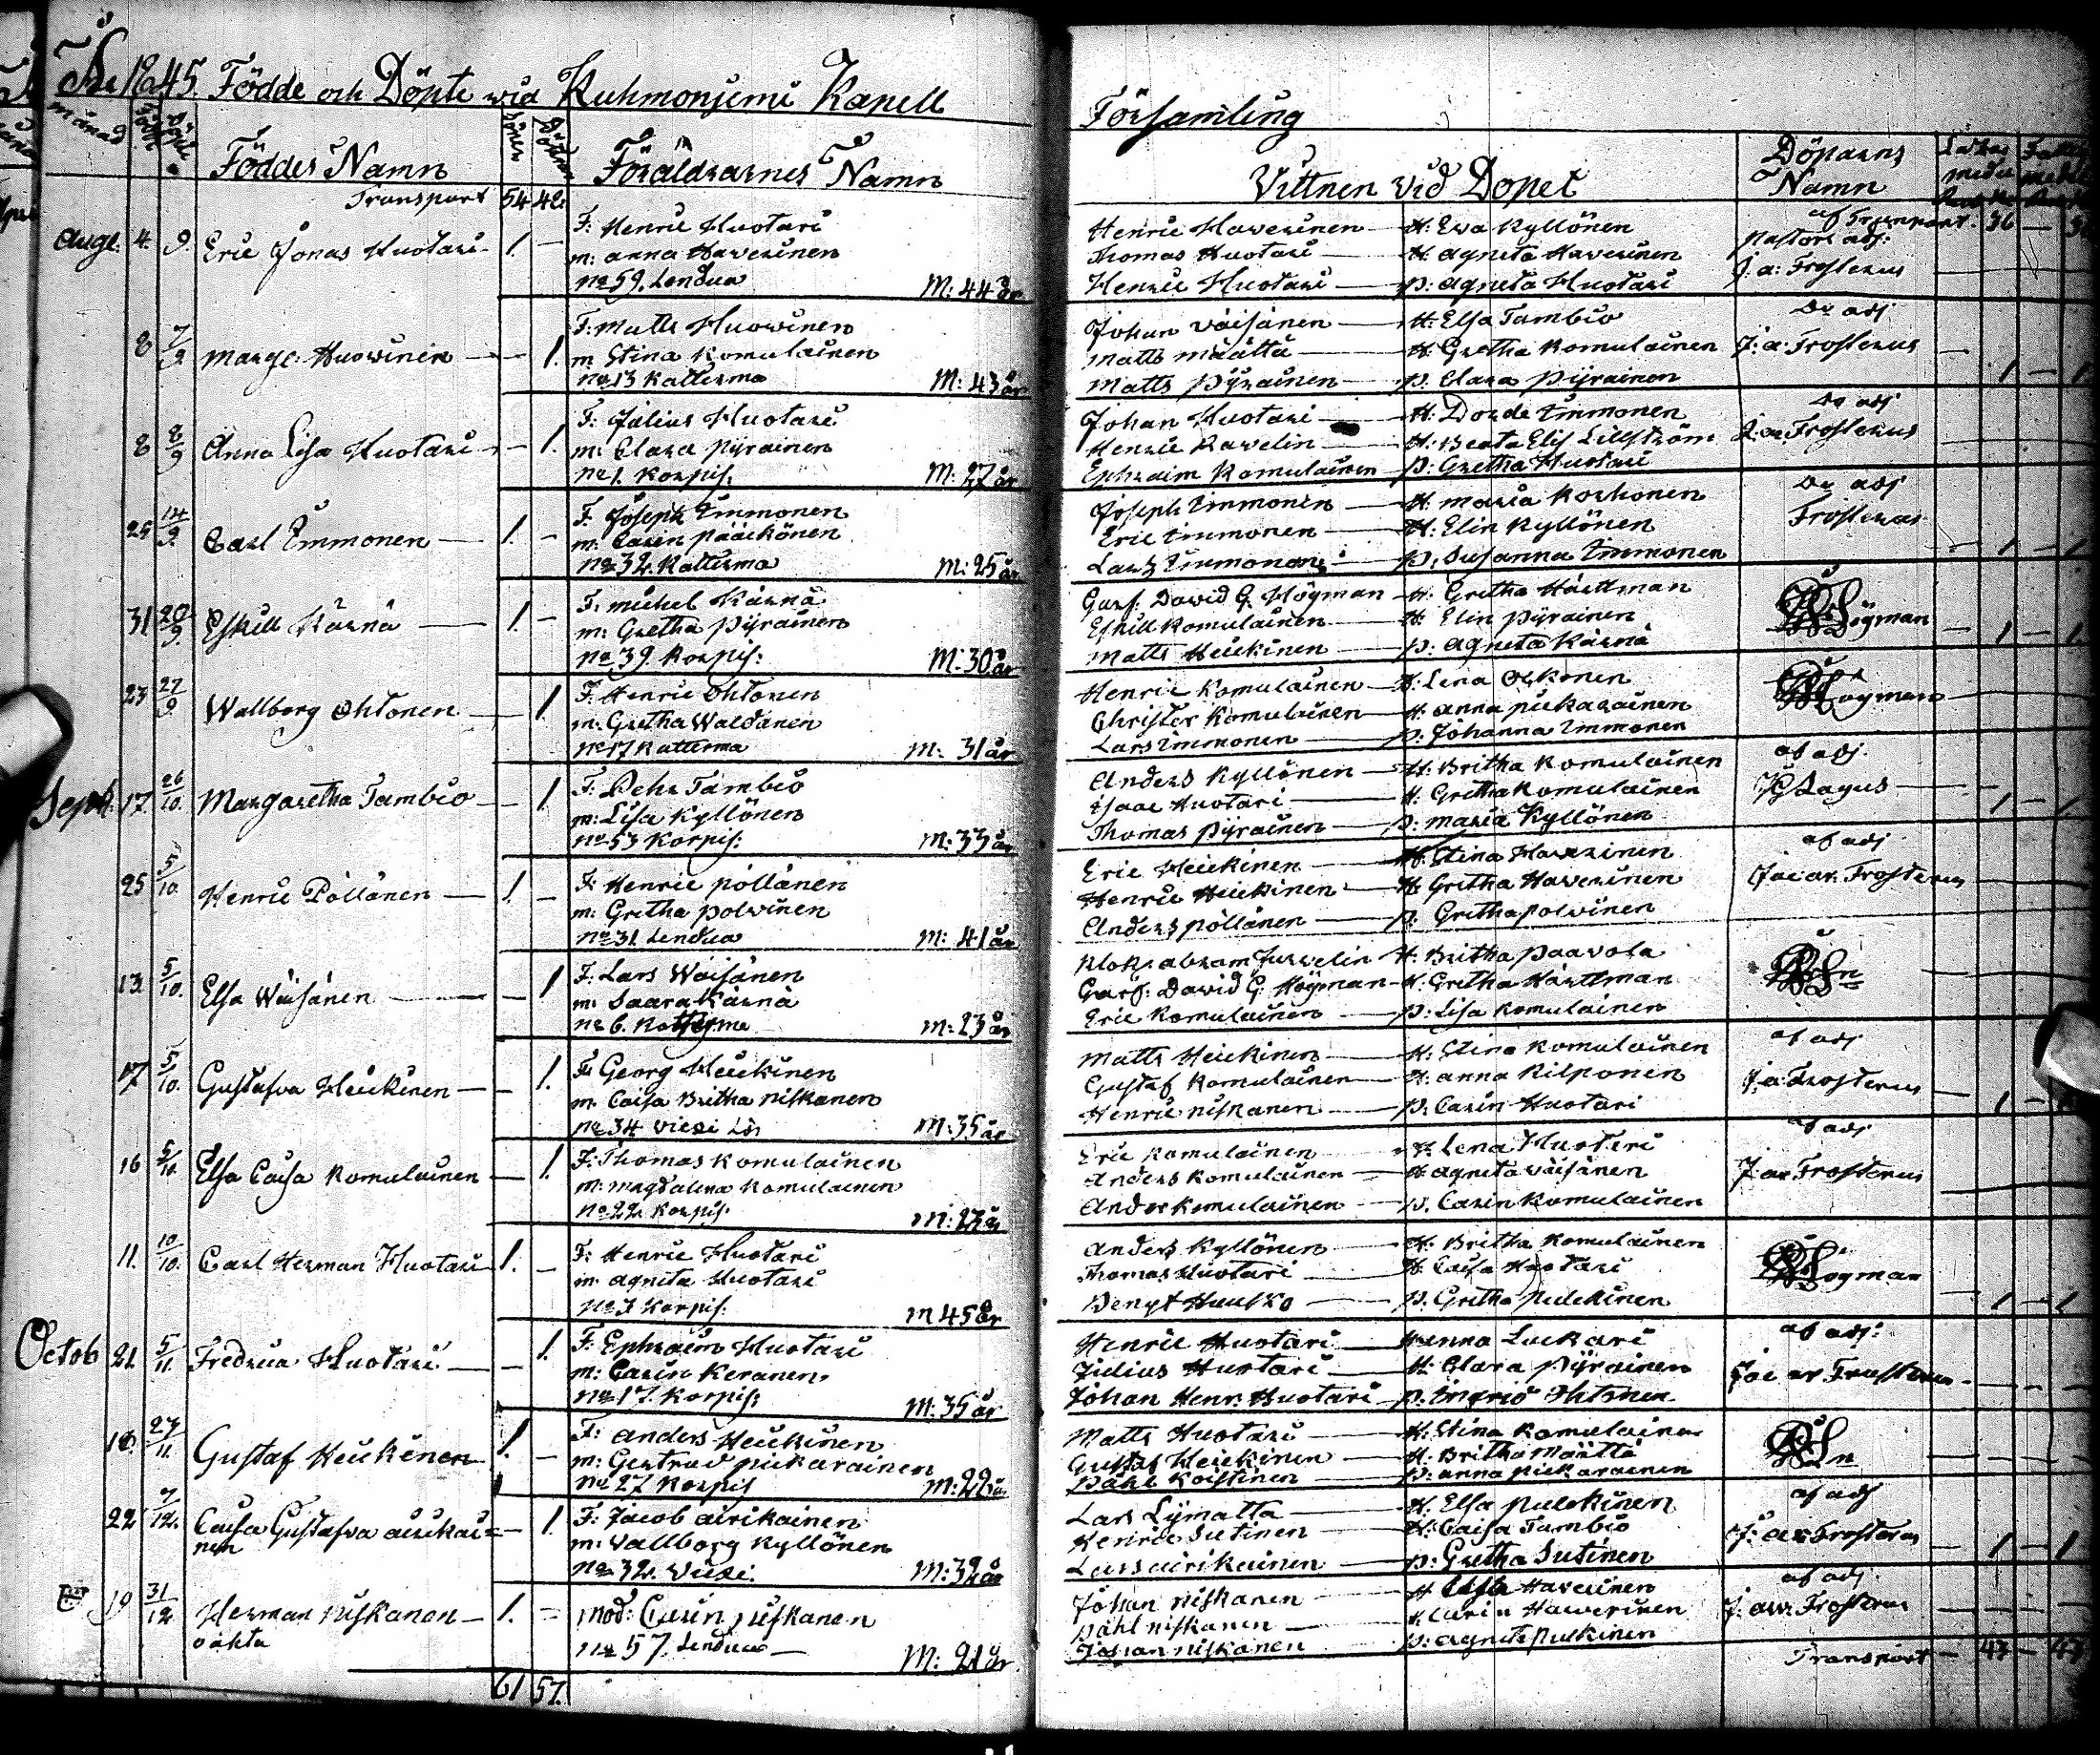 År 1845. Födde och Döpte wid Kuhmonjemi Kapell Församling
månad Född Döpte Föddes Namn Söner Döttrar Föräldrarnes Namn Vittnen vid Dopet Döparens Namn
Transport 54 42. af Transport. 36 —
Augt. 4. 9. Eric Jonas Huotari 1. — F: Henric Huotari Henric Haverinen — H: Ewa Kyllönen Pastors adj:
m: Anna Haverinen Thomas Huotari — H: Agneta Haverinen J. a: Frosterus
No 59. Lendua M: 44 år Henric Huotari — p: Agneta Huotari
8 7/9 Margt: Huovinen — 1. F: Matts Huovinen Johan Väisänen — H: Elsa Tambio av adj
m Stina Komulainen Matts Määttä — H: Gretha Komulainen J: a: Frosterus
No 13 Katterma M: 43 år Matts Pyrainen — p: Clara Pyrainen 1 — 1
8 8/9 Anna Lisa Huotari — 1. F: Julius Huotari Johan Huotari — H: Dorde Immonen av adj
m: Clara Pyrainen Henric Ravelin — H: Beata Elis Lillström J: av Frosterus
No 1. Korpis: M: 27 år Ephraim Komulainen — p: Gretha Huotari
25 14/9. Carl Immonen — 1. — F. Joseph Immonen Joseph Immonen — H: Maria Korhonen av adj
m: Carin Pääckönen Eric Immonen — H: Elin Kyllönen Frosterus
No 32. Katterma M: 25 år Lars Immonen — p: Susanna Immonen 1 — 1
31 20/9. Eskill Kärnä — 1. — F: Michel Kärnä Garf: David G. Högman — H: Gretha Härttman Högman
m: Gretha Pyrainen Eskill Komulainen — H: Elin Pyrainen
No 39. Korpis: M: 30 år Matts Heickinen — p: Agneta Kärnä 1 — 1
23 27/9 Wallborg Ohtonen — 1. F: Henric Ohtonen Henric Komulainen — H: Lena Ockonen Högman
m: Gretha Waldanen Christer Komulainen — H: Anna Pickarainen
No 17 Katterma M: 31 år Lars Immonen — p: Johanna Immonen
Sept. 17. 26/10. Margaretha Tambio — 1. F: Pehr Tambio Anders Kyllönen — H: Britha Komulainen af adj.
m: Lisa Kyllönen Isaac Huotari — H: Gretha Komulainen Lagus
No 53 Korpis: M: 33 år Thomas Pyrainen — p: Maria Kyllönen 1 — 1
25 5/10 Henric Pöllänen — 1. — F: Henric Pöllänen Eric Heickinen — H: Stina Haverinen af adj
m: Gretha Polvinen Henric Heickinen — H: Gretha Haverinen Frosterus
No 31 Lendua M: 41 år Anders Pöllänen — p. Gretha Polvinen
13. 5/10. Elsa Wäisänen — 1 F: Lars Wäisänen Klok: Abram Jurvelin H: Britha Paavola
m: Saara Kärnä Garf: David G. Högman — H: Gretha Härttman
No 6. Katterma M: 23 år Eric Komulainen — p: Lisa Komulainen
17 5/10. Gustafva Heickinen — 1. F: Georg Heickinen Matts Heickinen — H: Stina Komulainen af adj
m. Caisa Britha Niskanen Gustaf Komulainen — H: Anna Kilponen J: a: Frosterus
No 34 M: 35 år Henric Niskanen — p: Carin Huotari 1 —
16 5/10 Elsa Caisa Komulainen — 1. F: Thomas Komulainen Eric Komulainen — H: Lena Huotari af adj
m: Magdalena Komulainen Anders Komulainen — H: Agneta Väisänen J av Frosterus
No 22 Korpis. M: 23 år Ander Komulainen — p: Carin Komulainen
11. 10/10. Carl Herman Huotari 1. — F: Henric Huotari Anders Kyllönen — H: Britha Komulainen Högman
m. Agneta Huotari Thomas Huotari — H: Caisa Huotari
No 7 Korpis. M 45 år Bengt Huusko — p. Gretha Pulckinen 1 — 1
Octob 21. 5/11. Fredrica Huotari — 1. F: Ephraim Huotari Henric Huotari — H Anna Luckari af adj:
m: Carin Keränen. Julius Huotari — H: Clara Pyrainen Frosterus
No 17. Korpis: M: 35 år Johan Henr. Huotari p. Ingrid
18. 27/11. Gustaf Heickinen 1. — F: Anders Heickinen Matts Huotari — H: Stina Komulainen
m: Gertrud Pickarainen Gustaf Heickinen — H: Britha Määttä
No 27 Korpis M: 22 år Påhl Koistinen — p: Anna Pickarainen
22 7/12. Caisa Gustafva Airikai= — 1. F: Jacob Airikainen Lars Lymatta — H. Elsa Pulckinen af adj
nen m: Wallborg Kyllönen Henric Sutinen — H: Caisa Tambio J: av Frosterus
No 32. Wiexi. M: 32 år Lars Airikainen — p: Gretha Sutinen 1 — 1
19 31/12 Herman Niskanen — 1. — Mod: Carin Niskanen Johan Niskanen — H Haverinen af adj.
oäkta No 57. Lendua — M: 21 år Påhl Niskanen — H Carin Haverinen Frosterus
Johan Niskanen p: Agneta Pulkinen
61 57. Transport — 47 — 47